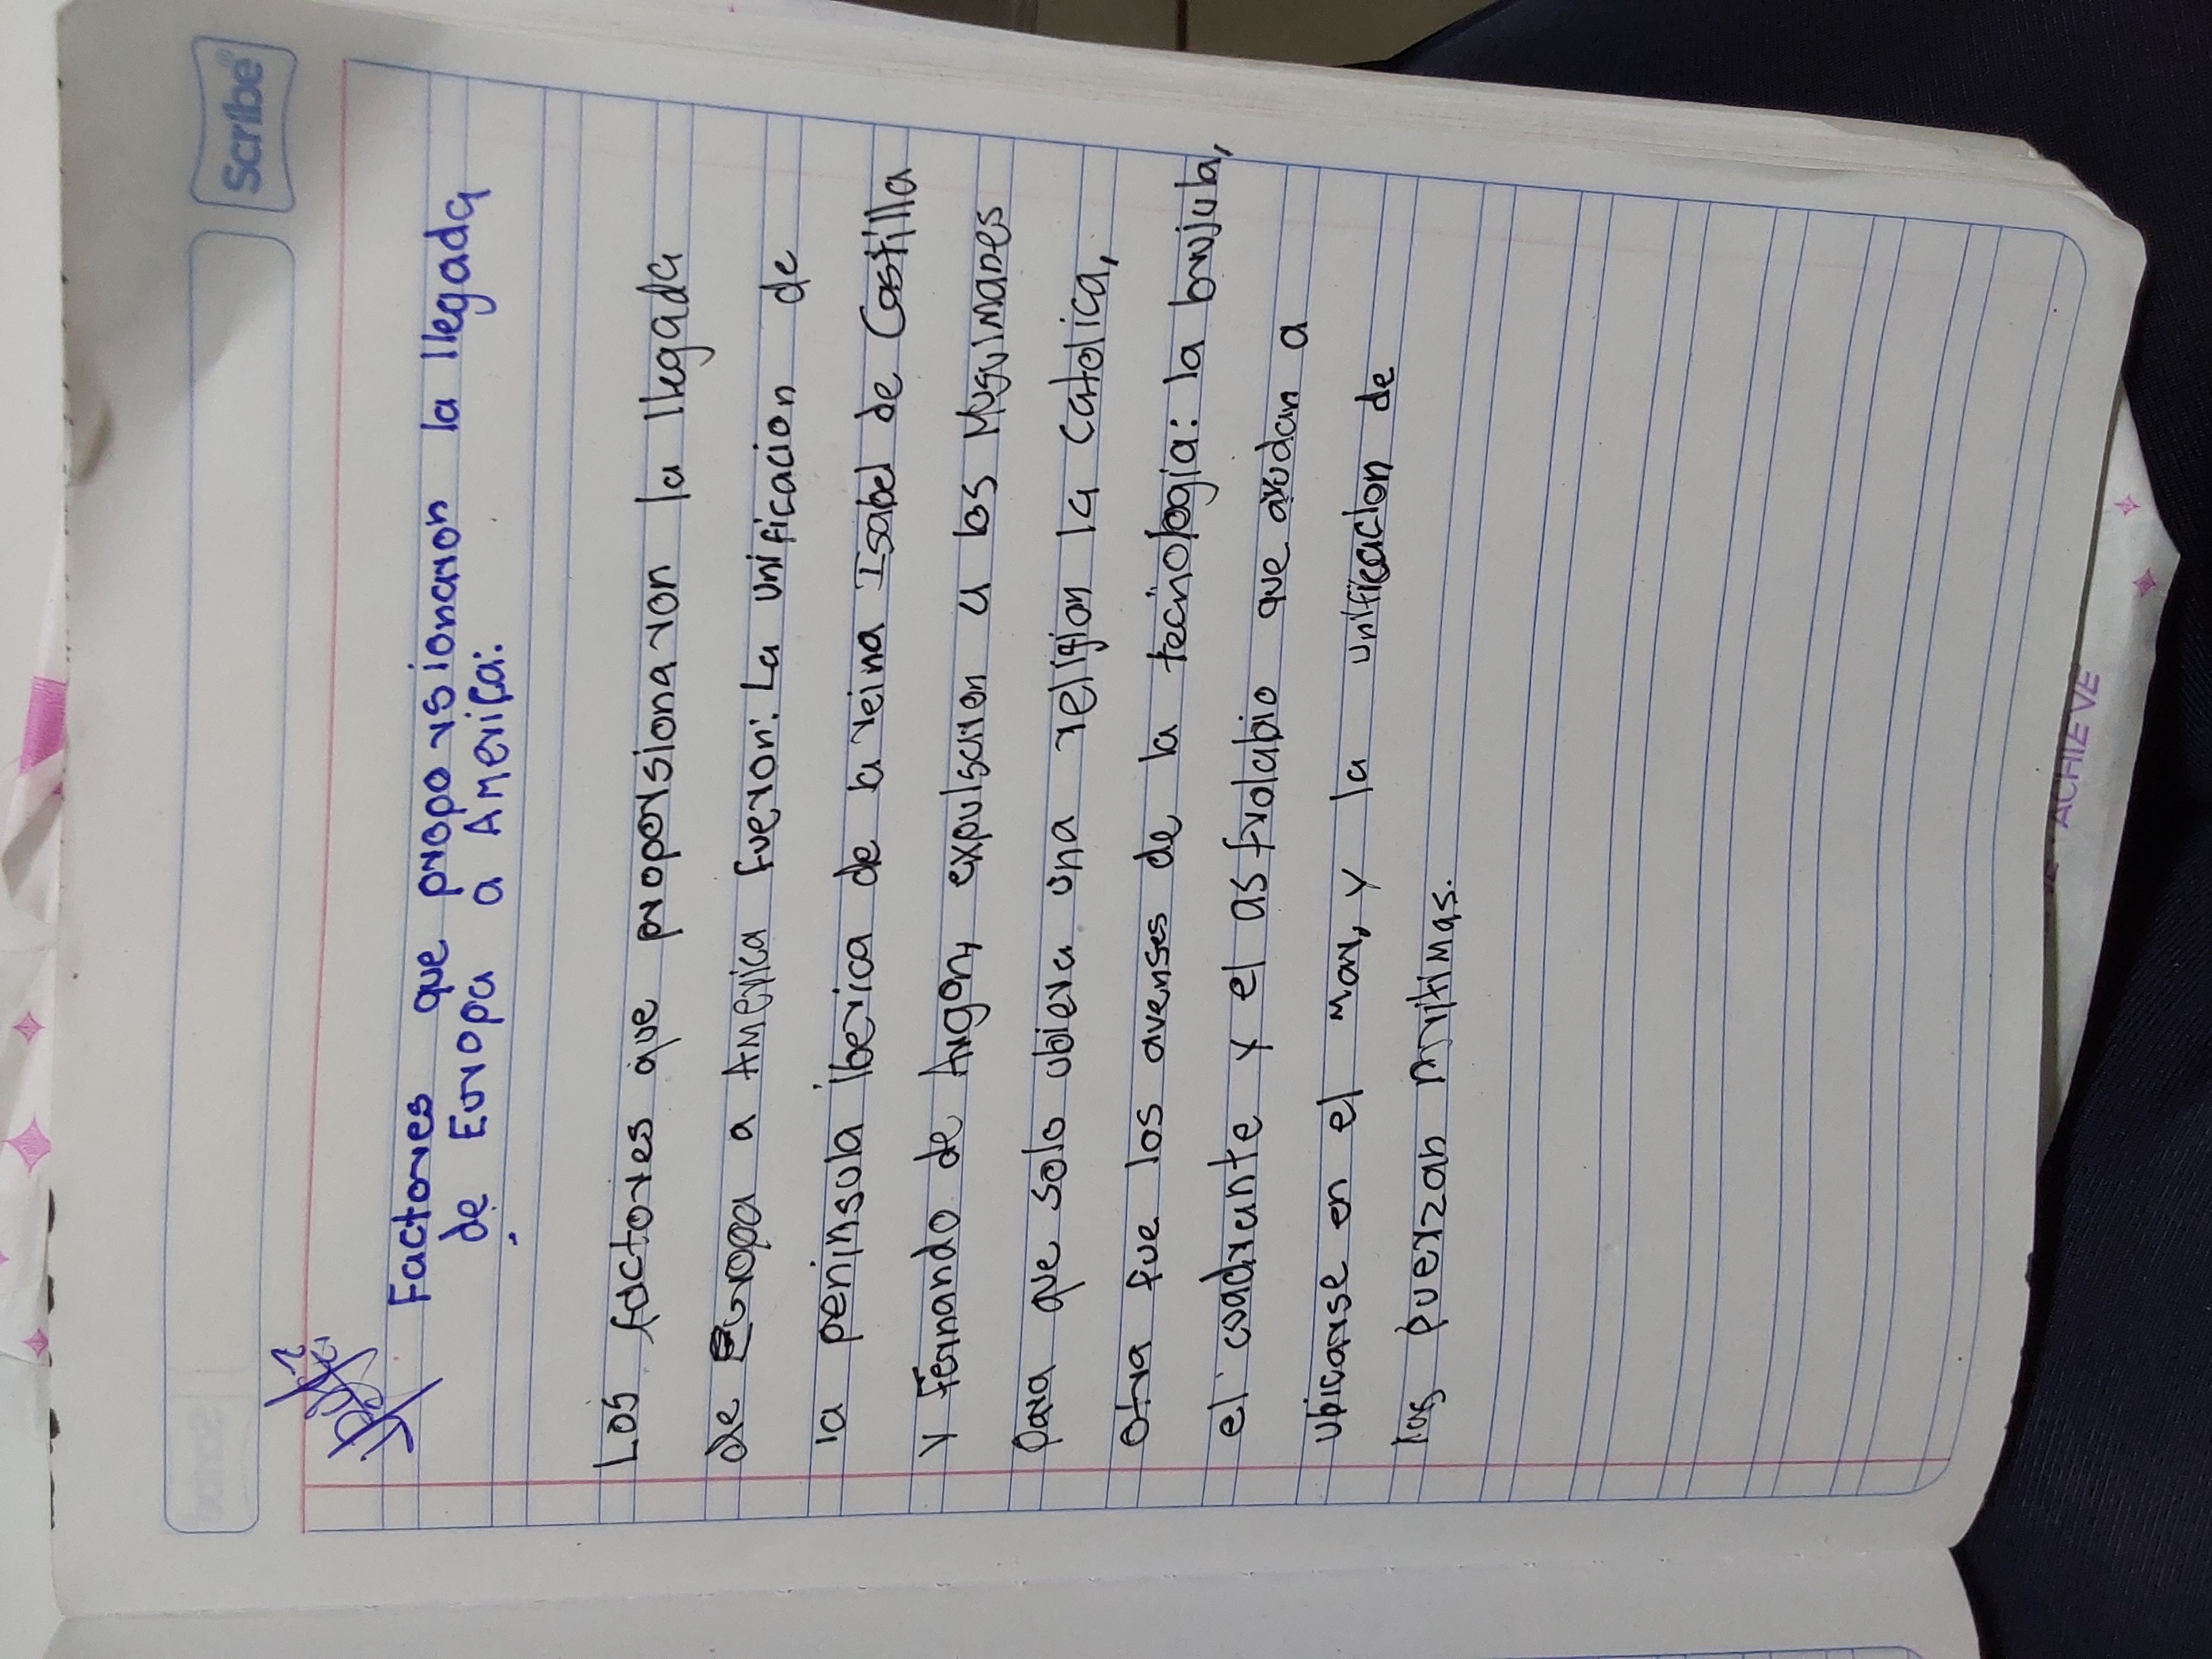 Scribe
Factores que proporsionaron la llegada
de Europa a America:
Los factores que proporsionaron la llegada
de Europa a America fueron: La unificacion de
la peninsula iberica de la reina Isabel de Castilla
y Fernando de Aragon, expulscion a los Musulmanes
para que solo ubiera una religion la catolica,
Otra fue los avenses de la tecnologia: la brujula,
el cuadrante y el astrolabio que ayudan a
ubicarse en el mar, y la unificacion de
las puerzan mritimas.
ACHIEVE